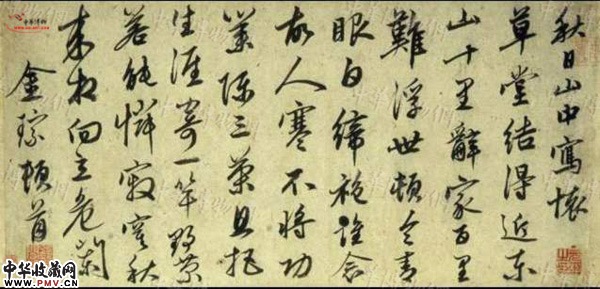 秋日山中寫懷
草堂結得近東
山十里辭家百里
難浮世頓令青
眼白綈袍誰念
故人寒不將功
業陳三策且把
生涯寄一竿野
若能憐寂寞秋
來相向立危闌
金琮頓首
中华收藏网
www.PMV.cn